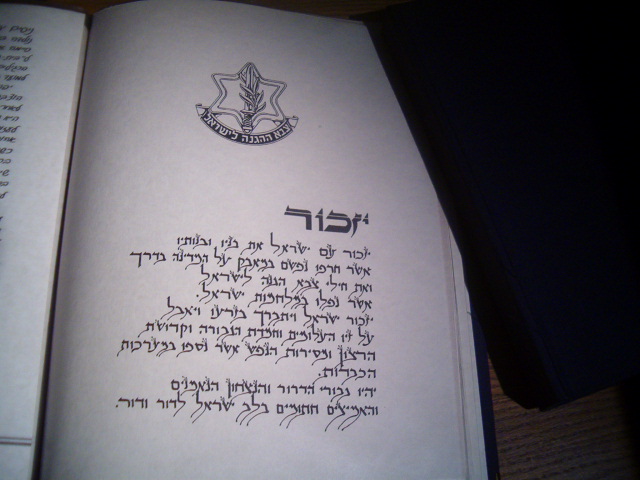 צבא ההגנה לישראל
יזכור
יזכור עם ישראל את בניו ובנותיו
אשר חרפו נפשם במאבק על המדינה בדרך
ואת חילי צבא הגנה לישראל
אשר נפלו במלחמות ישראל.
יזכור ישראל ויתברך בזרעו ויאבל
על זיו העלומים וחמדת הגבורה וקדושת
הרצון ומסירות הנפש אשר נספו במערכות
הכבדות.
יהיו גבורי הדרור והנצחון הנאמנים
והאמיצים חתומים בלב ישראל לדור ודור.